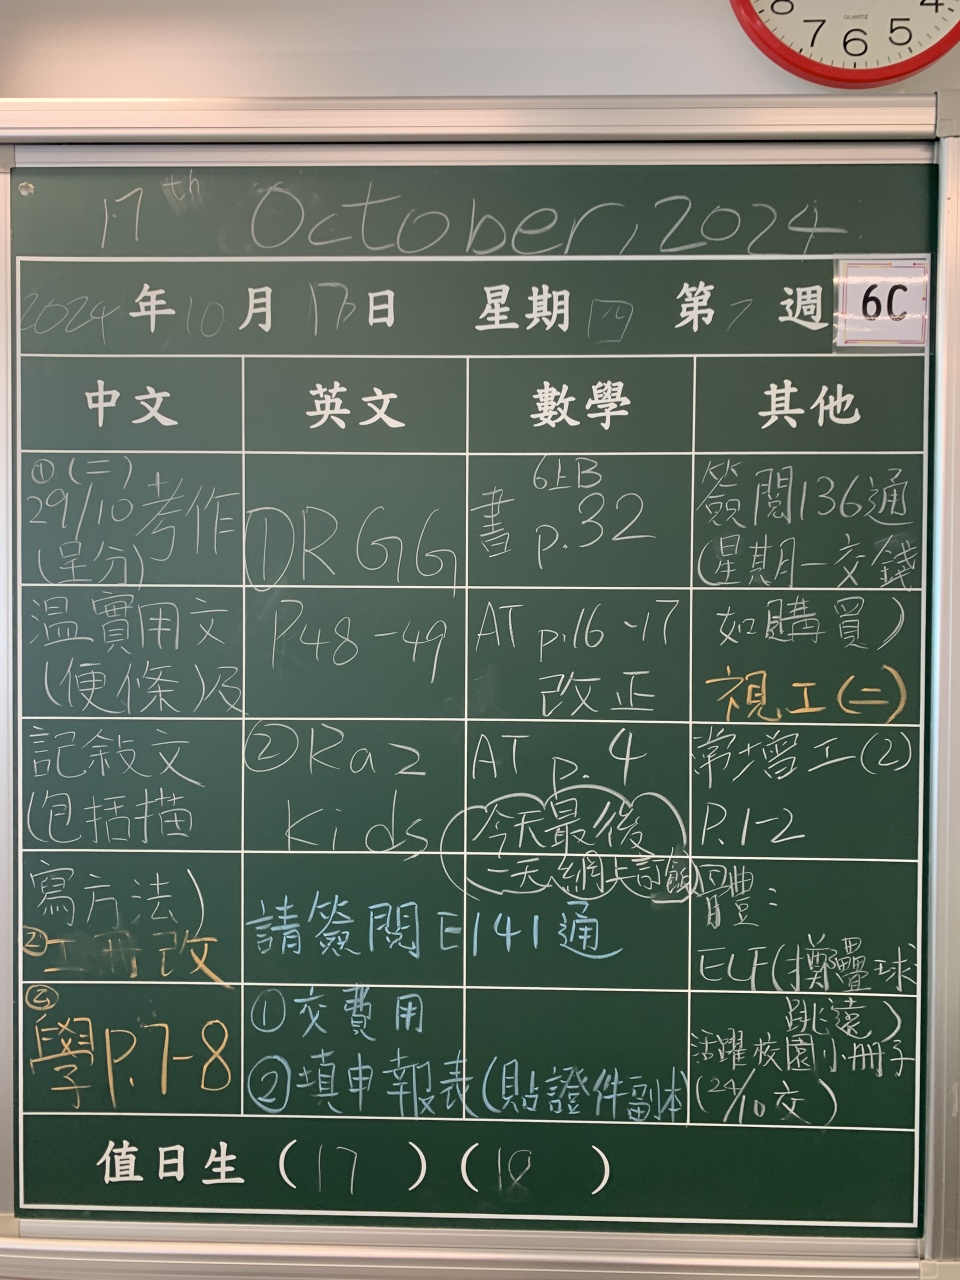 8 7 6 5 4
QUARTZ
17th October, 2024
2024年10月17日 星期四 第7週 6C
中文 英文 數學 其他
①(二)
29/10考作
(呈分)
温實用文
(便條)及
記敍文
(包括描
寫方法)
②工冊改
③
學P.7-8
①DRGG
P48-49
②Raz
Kids
6上B
書 p.32
AT p.16-17
改正
AT p.4
今天最後
一天網上訂飯
簽閱136通
(星期一交錢
如購買)
視工(二)
常增工(2)
P.1-2
體:
ELF(擲壘球
跳遠)
活躍校園小冊子
(24/10交)
請簽閱E141通
①交費用
②填申報表(貼證件副本
值日生(17)(18)